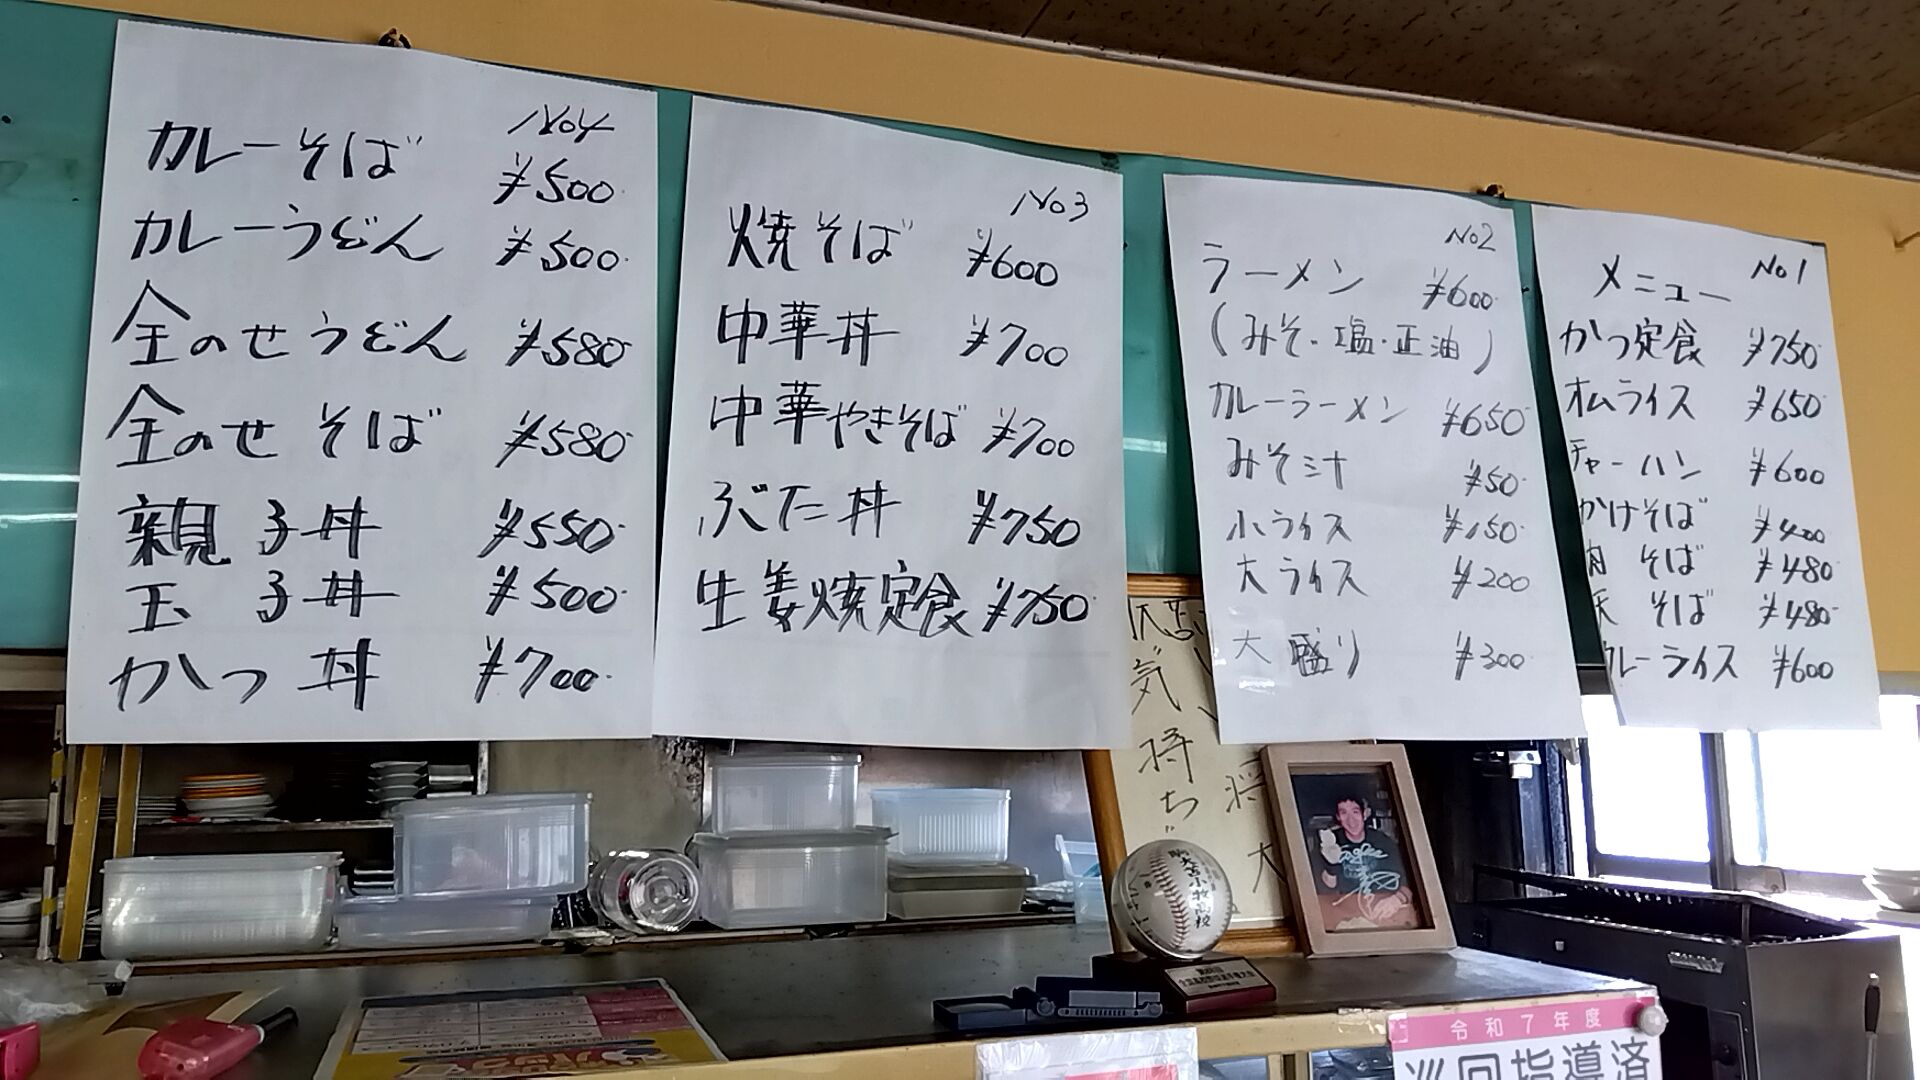 No4
カレーそば ¥500
カレーうどん ¥500
全のせうどん ¥580
全のせそば ¥580
親子丼 ¥550
玉子丼 ¥500
かつ丼 ¥700
No3
焼そば ¥600
中華丼 ¥700
中華やきそば ¥700
ぶた丼 ¥750
生姜焼定食 ¥750
No2
ラーメン ¥600
(みそ・塩・正油)
カレーラーメン ¥650
みそ汁 ¥50
小ライス ¥150
大ライス ¥200
大盛り ¥300
No1
メニュー
かつ定食 ¥750
オムライス ¥650
チャーハン ¥600
かけそば ¥400
肉そば ¥480
天そば ¥480
カレーライス ¥600
気持ち
駒大苫小牧高校
令和7年度
巡回指導済